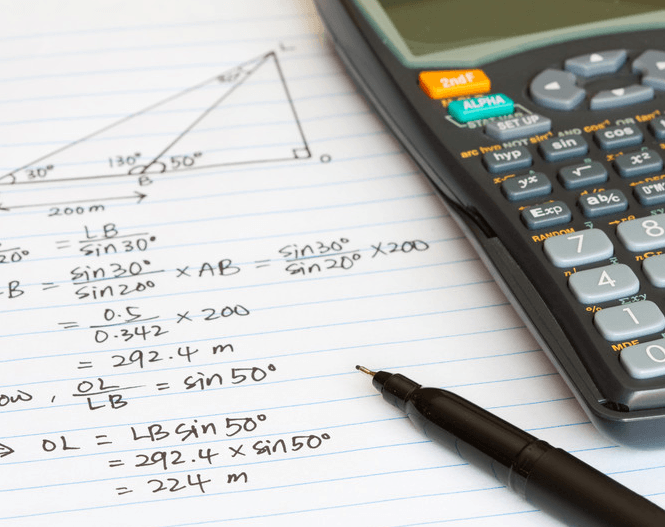 L
20°
30°
130°
50°
B
O
200 m
20° = LB / sin 30°
B = sin 30° / sin 20° × AB = sin 30° / sin 20° × 200
= 0.5 / 0.342 × 200
= 292.4 m
ow, OL / LB = sin 50°
⇒ OL = LB sin 50°
= 292.4 × sin 50°
= 224 m
2ndF
ALPHA
SET UP
arc hyp NOT sin⁻¹ AND cos⁻¹ OR
hyp sin cos
yx √ x²
Exp ab/c
RANDOM
7 8
n!
4
% Σxy
1
MDF
0